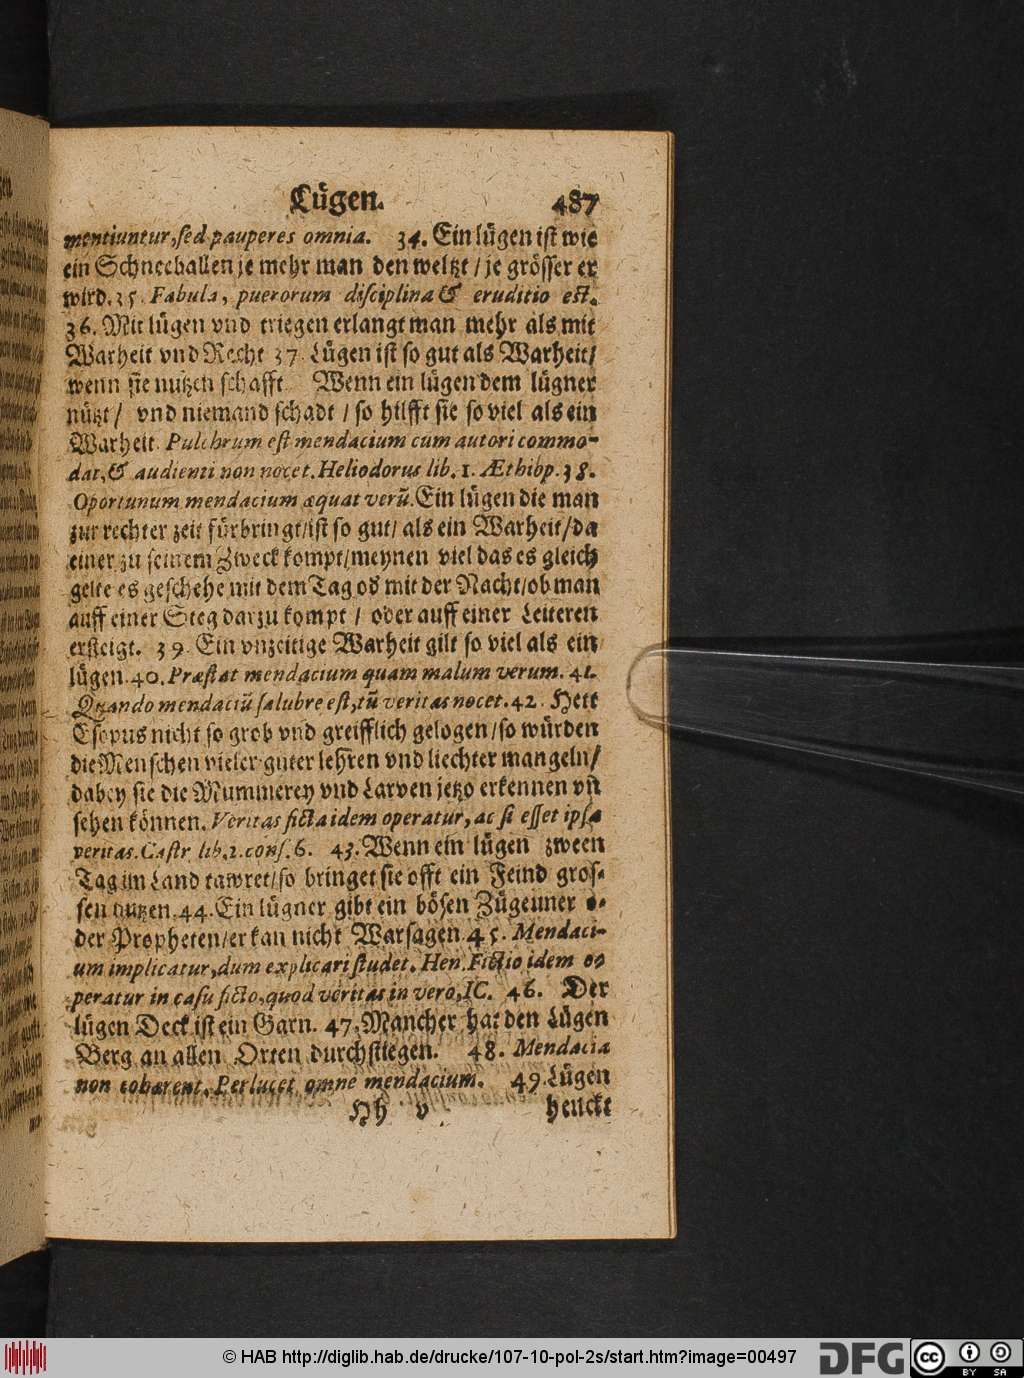 Lügen. 487
mentiuntur, sed pauperes omnia. 34. Ein lügen ist wie
ein Schneeballen je mehr man den weltzt / je grösser er
wird. 35. Fabula, puerorum disciplina & eruditio est.
36. Mit lügen vnd triegen erlangt man mehr als mit
Warheit vnd Recht 37. Lügen ist so gut als Warheit/
wenn sie nutzen schafft. Wenn ein lügen dem lügner
nützt / vnd niemand schadt / so hilfft sie so viel als ein
Warheit. Pulchrum est mendacium cum autori commo-
dat, & audienti non nocet. Heliodorus lib. 1. Æthiop. 38.
Oportunum mendacium æquat verũ. Ein lügen die man
zur rechter zeit fürbringt/ist so gut/ als ein Warheit/da
einer zu seinem Zweck kompt/meynen viel das es gleich
gelte es geschehe mit dem Tag od mit der Nacht/ob man
auff einer Steg darzu kompt / oder auff einer Leiteren
ersteigt. 39. Ein vnzeitige Warheit gilt so viel als ein
lügen. 40. Præstat mendacium quam malum verum. 41.
Quando mendaciũ salubre est, tũ veritas nocet. 42. Hett
Esopus nicht so grob vnd greifflich gelogen/so würden
die Menschen vieler guter lehren vnd liechter mangeln/
dabey sie die Mummerey vnd Larven jetzo erkennen vñ
sehen können. Veritas ficta idem operatur, ac si esset ipsa
veritas. Castr. lib. 2. cons. 6. 43. Wenn ein lügen zween
Tag im Land tawret/so bringet sie offt ein Feind gros-
sen nutzen. 44. Ein lügner gibt ein bösen Zügeuner o-
der Propheten/er kan nicht Warsagen. 45. Mendaci-
um implicatur, dum explicari studet. Hen. Fictio idem o-
peratur in casu ficto, quod veritas in vero, IC. 46. Der
lügen Deck ist ein Garn. 47. Mancher hat den Lügen
Berg an allen Orten durchstiegen. 48. Mendacia
non cohærent. Perlucet omne mendacium. 49. Lügen
Hh v henckt
© HAB http://diglib.hab.de/drucke/107-10-pol-2s/start.htm?image=00497 DFG cc BY SA